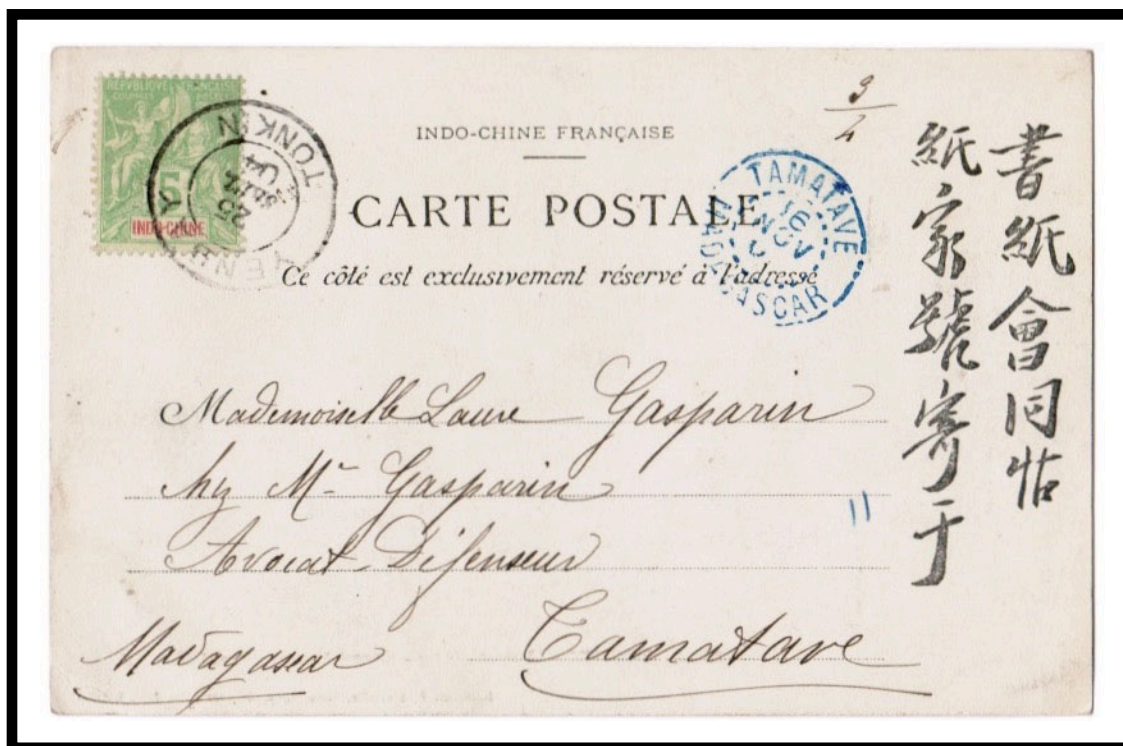 REPUBLIQUE FRANÇAISE
5
INDO-CHINE
TONKIN
25
04
INDO-CHINE FRANÇAISE
CARTE POSTALE
Ce côté est exclusivement réservé à l'adresse
TAMATAVE
16
NOV
MADAGASCAR
3/4
書紙會同帖
紙家號寄于
Mademoiselle Laure Gasparin
chez Mr Gasparin
Avocat-Défenseur
11
Madagascar Tamatave